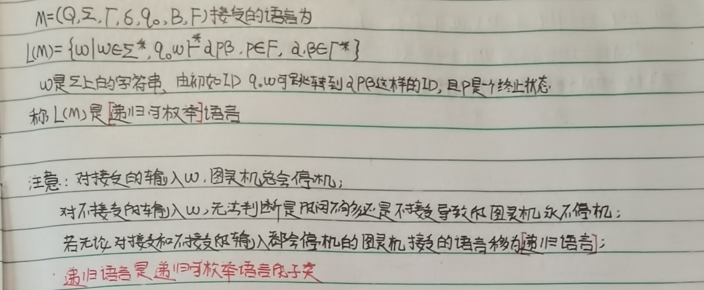 M=(Q,Σ,Γ,δ,q₀,B,F)接受的语言为
L(M)={w|w∈Σ*,q₀w⊢*αPβ.P∈F,α.β∈Γ*}
w是Σ上的字符串,由初始ID q₀w可跳转到αPβ这样的ID,且P是一个终止状态.
称L(M)是[递归可枚举]语言
注意:对接受的输入w.图灵机总会停机;
对不接受的输入w,无法判断是时间不够还是不接受导致的图灵机永不停机;
若无论对接受和不接受的输入都会停机的图灵机接受的语言称为[递归语言];
递归语言是递归可枚举语言的子类